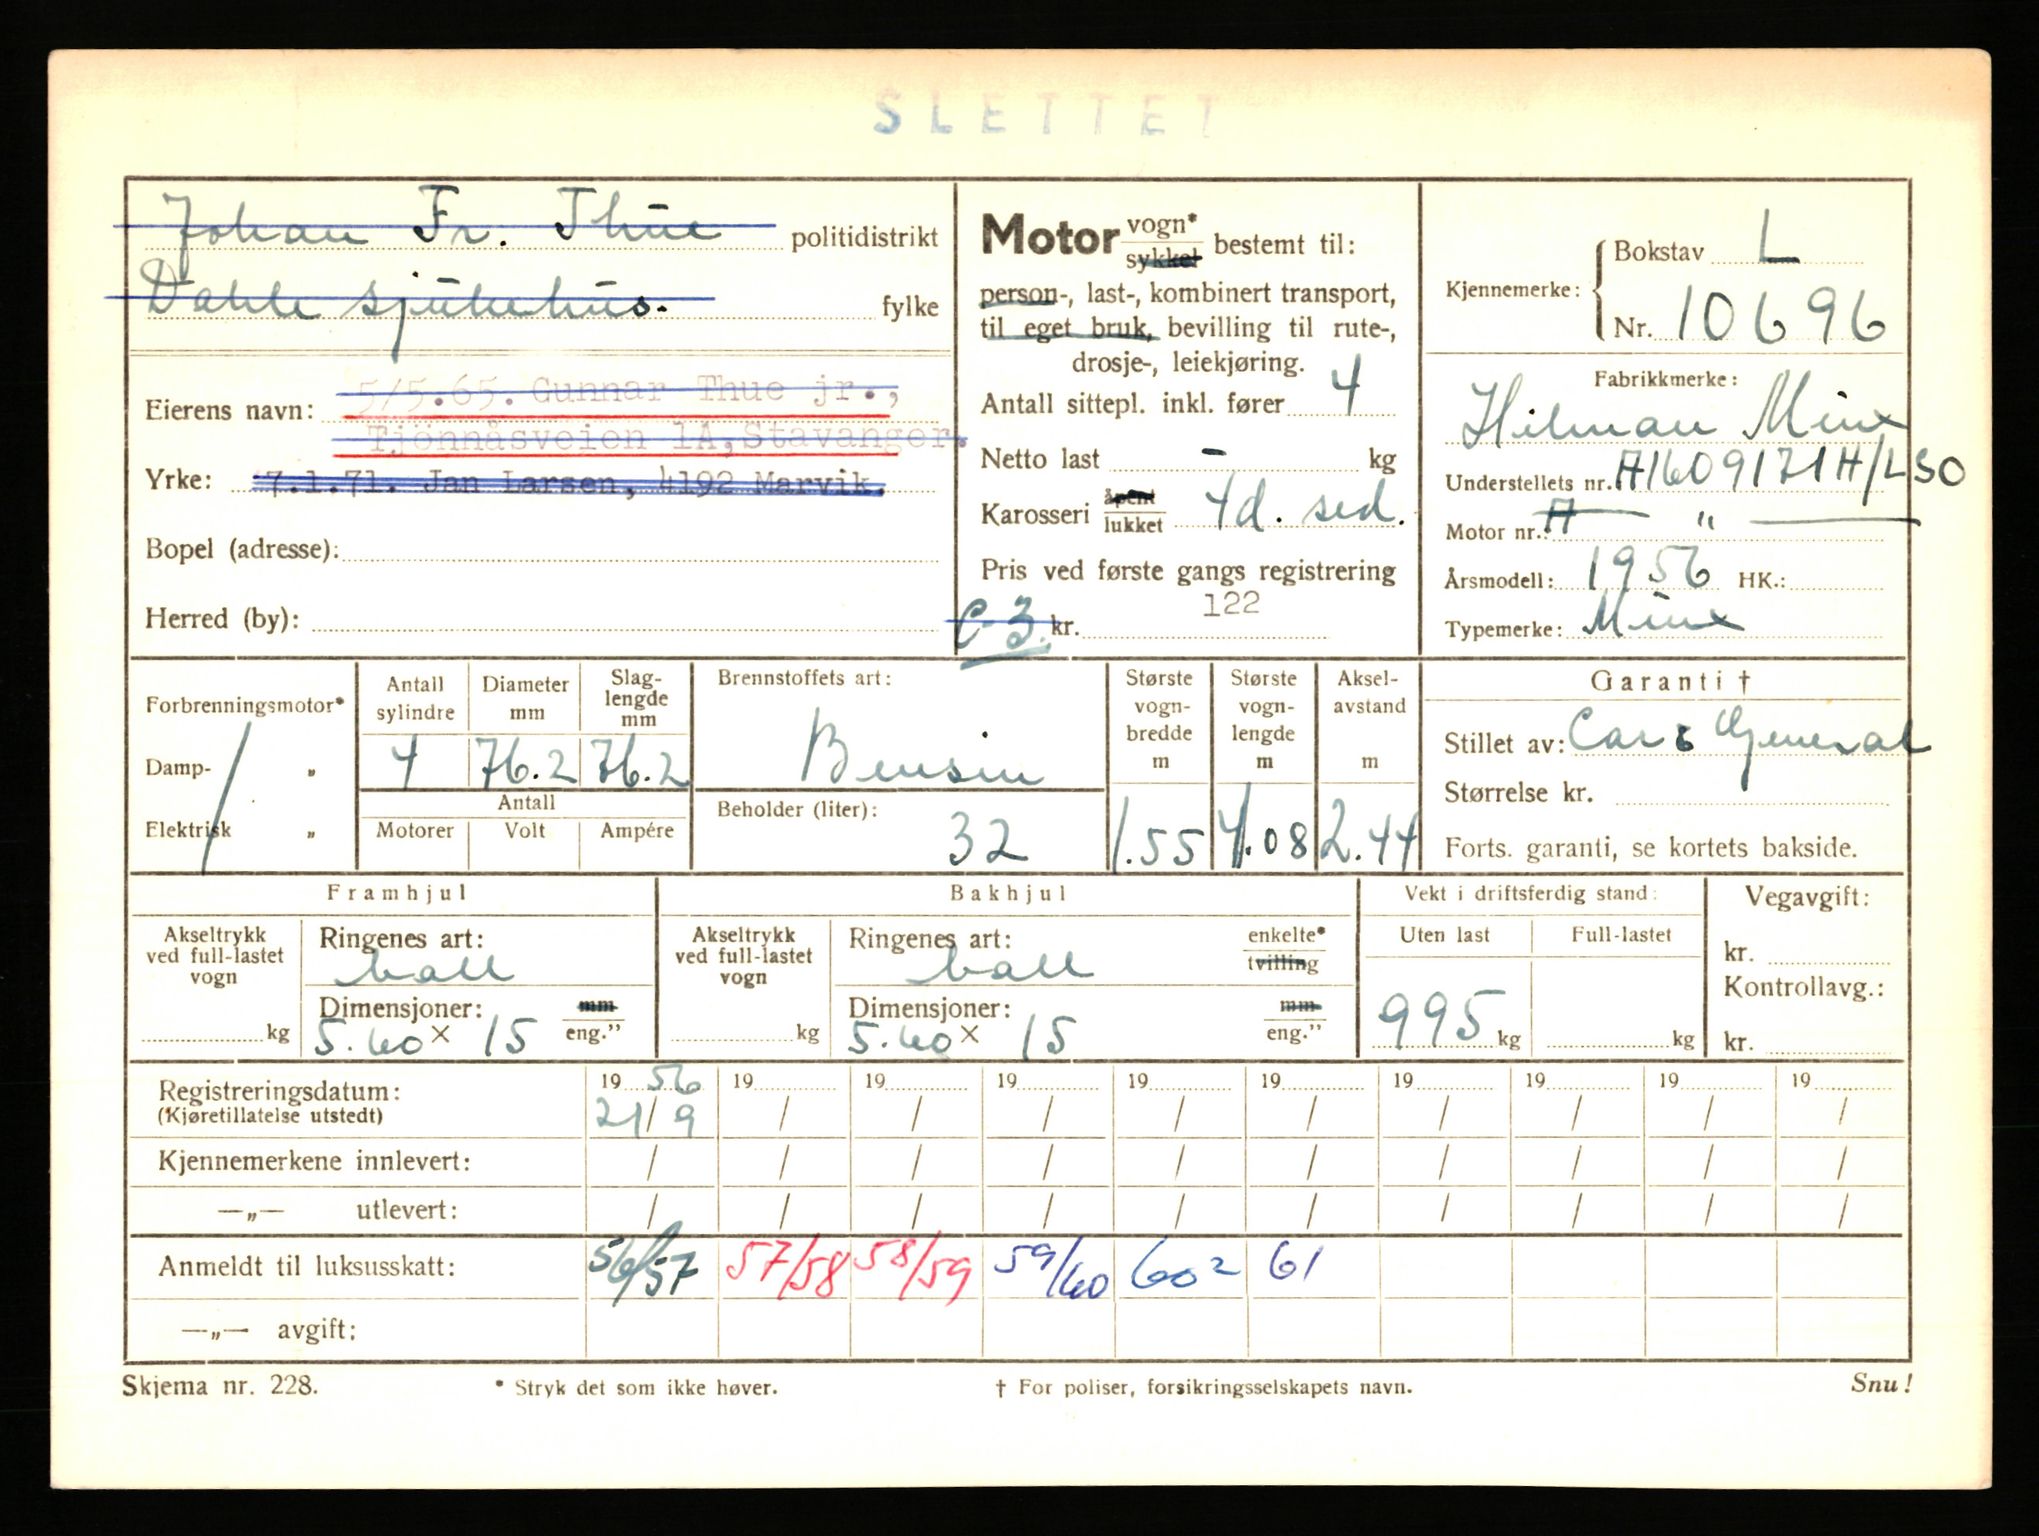 SLETTET
Johan Fr. Thue politidistrikt
Dahle sjukehus. fylke
Eierens navn: 5/5.65. Gunnar Thue jr.,
Tjönnåsveien 1A, Stavanger.
Yrke: 7.1.71. Jan Larsen, 4192 Marvik.
Bopel (adresse):
Herred (by):
Motor vogn* sykkel bestemt til:
person-, last-, kombinert transport,
til eget bruk, bevilling til rute-,
drosje-, leiekjøring.
Antall sittepl. inkl. fører 4
Netto last - kg
Karosseri åpent lukket 4d. sed.
Pris ved første gangs registrering
122
C-3 kr.
Kjennemerke: Bokstav L
Nr. 10696
Fabrikkmerke:
Hilman Minx
Understellets nr. A1609171H/LSO
Motor nr.: A — " —
Årsmodell: 1956 HK.:
Typemerke: Minx
Forbrenningsmotor*
Damp- "
Elektrisk "
Antall sylindre 4
Diameter mm 76.2
Slag-lengde mm 76.2
Antall
Motorer Volt Ampére
Brennstoffets art:
Bensin
Beholder (liter):
32
Største vogn-bredde m 1.55
Største vogn-lengde m 4.08
Aksel-avstand m 2.44
Garanti †
Stillet av: Car & General
Størrelse kr.
Forts. garanti, se kortets bakside.
Framhjul
Akseltrykk ved full-lastet vogn
kg
Ringenes art:
ball
Dimensjoner: mm
5.60 x 15 eng."
Bakhjul
Akseltrykk ved full-lastet vogn
kg
Ringenes art: enkelte*
ball tvilling
Dimensjoner: mm
5.60 x 15 eng."
Vekt i driftsferdig stand:
Uten last Full-lastet
995 kg kg
Vegavgift:
kr.
Kontrollavg.:
kr.
Registreringsdatum: 19 56 19 19 19 19 19 19 19 19 19
(Kjøretillatelse utstedt) 21/9 / / / / / / / / /
Kjennemerkene innlevert: / / / / / / / / / /
—„— utlevert: / / / / / / / / / /
Anmeldt til luksusskatt: 56/57 57/58 58/59 59/60 60² 61
—„— avgift:
Skjema nr. 228. * Stryk det som ikke høver. † For poliser, forsikringsselskapets navn. Snu!